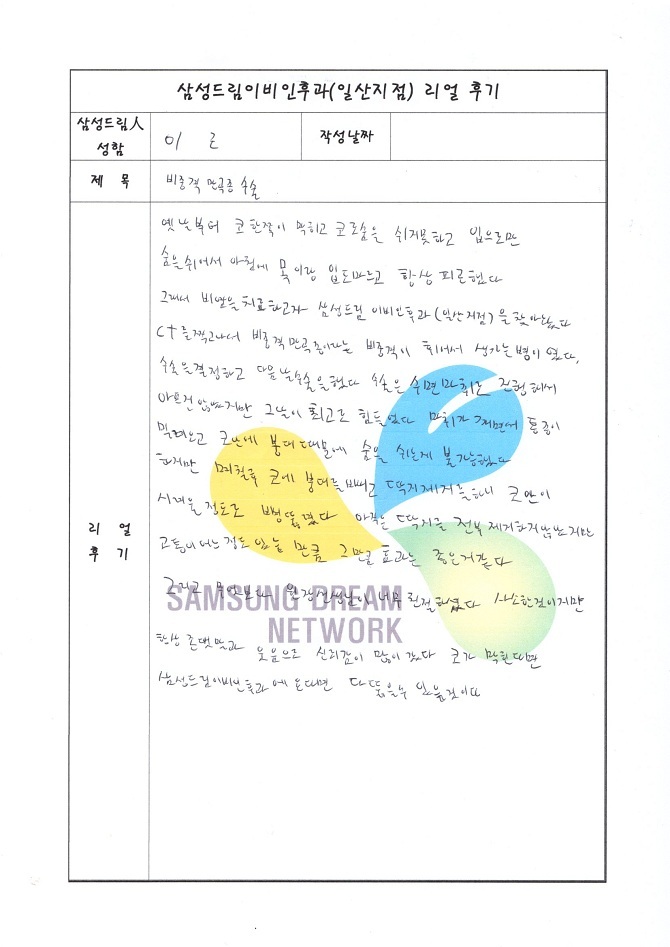 삼성드림이비인후과(일산지점) 리얼 후기
삼성드림人
성함
이 로
작성날짜
제 목
비중격 만곡증 수술
리 얼
후 기
옛날부터 코 한쪽이 막히고 코로숨을 쉬지못하고 입으로만
숨을쉬어서 아침에 목이랑 입도마르고 항상 피곤했다
그래서 비염을치료하고자 삼성드림 이비인후과(일산지점)을 찾아왔다
CT를찍고나서 비중격만곡증이라는 비중격이 휘어서 생기는병이 였다,
수술을결정하고 다음날수술을했다 수술은 수면마취로 진행해서
아프진않았지만 그날이 최고로 힘들었다 마취가 깨면서 통증이
밀려오고 코안에 붕대때문에 숨을 쉬는게 불가능했다
하지만 며칠후 코에 붕대를빼고 딱지제거를하니 코안이
시려울정도로 뻥뚫렸다 아직은 딱지를 전부 제거하지않았지만
고통이 어느정도 있는 만큼 그만큼 효과는 좋은거같다
그리고 무엇보다 원장선생님이 너무친절하셨다 사소한것이지만
항상 존댓말과 웃음으로 신뢰감이 많이 갔다 코가 막힌다면
삼성드림이비인후과에 온다면 다뚫을수 있을것이다
SAMSUNG DREAM
NETWORK